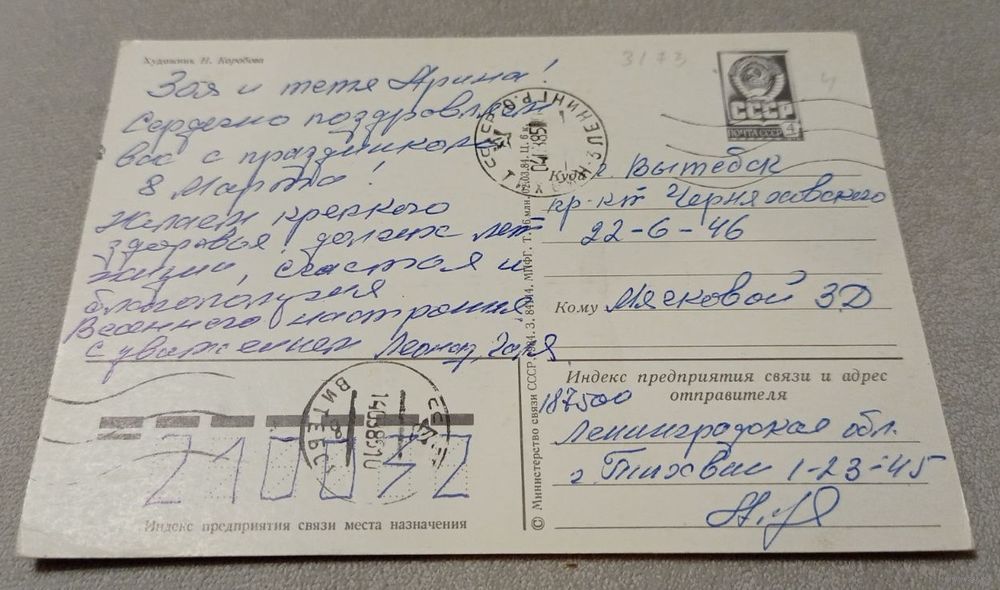 Художник Н. Коробова
3173
4
Зоя и тетя Арина!
Сердечно поздровляем
вас с праздником
8 Марта!
Желаем крепкого
здоровья, долгих лет
жизни, счастья и
благополучия
Весеннего настроения
с уважением Леонид, Галя
СССР
ПОЧТА СССР 4
Куда г. Вытебск
пр-кт Черняховского
22-6-46
Кому Мясковой З.Д
Индекс предприятия связи и адрес
отправителя
187500
Ленинградская обл.
г. Тихвин 1-23-45
© Министерство связи СССР, 1984. З. 84114. МПФГ.
ВИТЕБСК
210032
Индекс предприятия связи места назначения